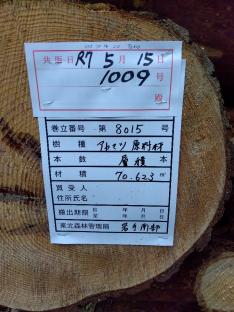 先番日 R7 5月15日
1009号
殿
巻立番号 第 8015 号
樹種 アカマツ 原料材
本数 層積
材積 70.623 m³
買受人
住所氏名
搬出期限 自 年 月 日
至 年 月 日
東北森林管理局